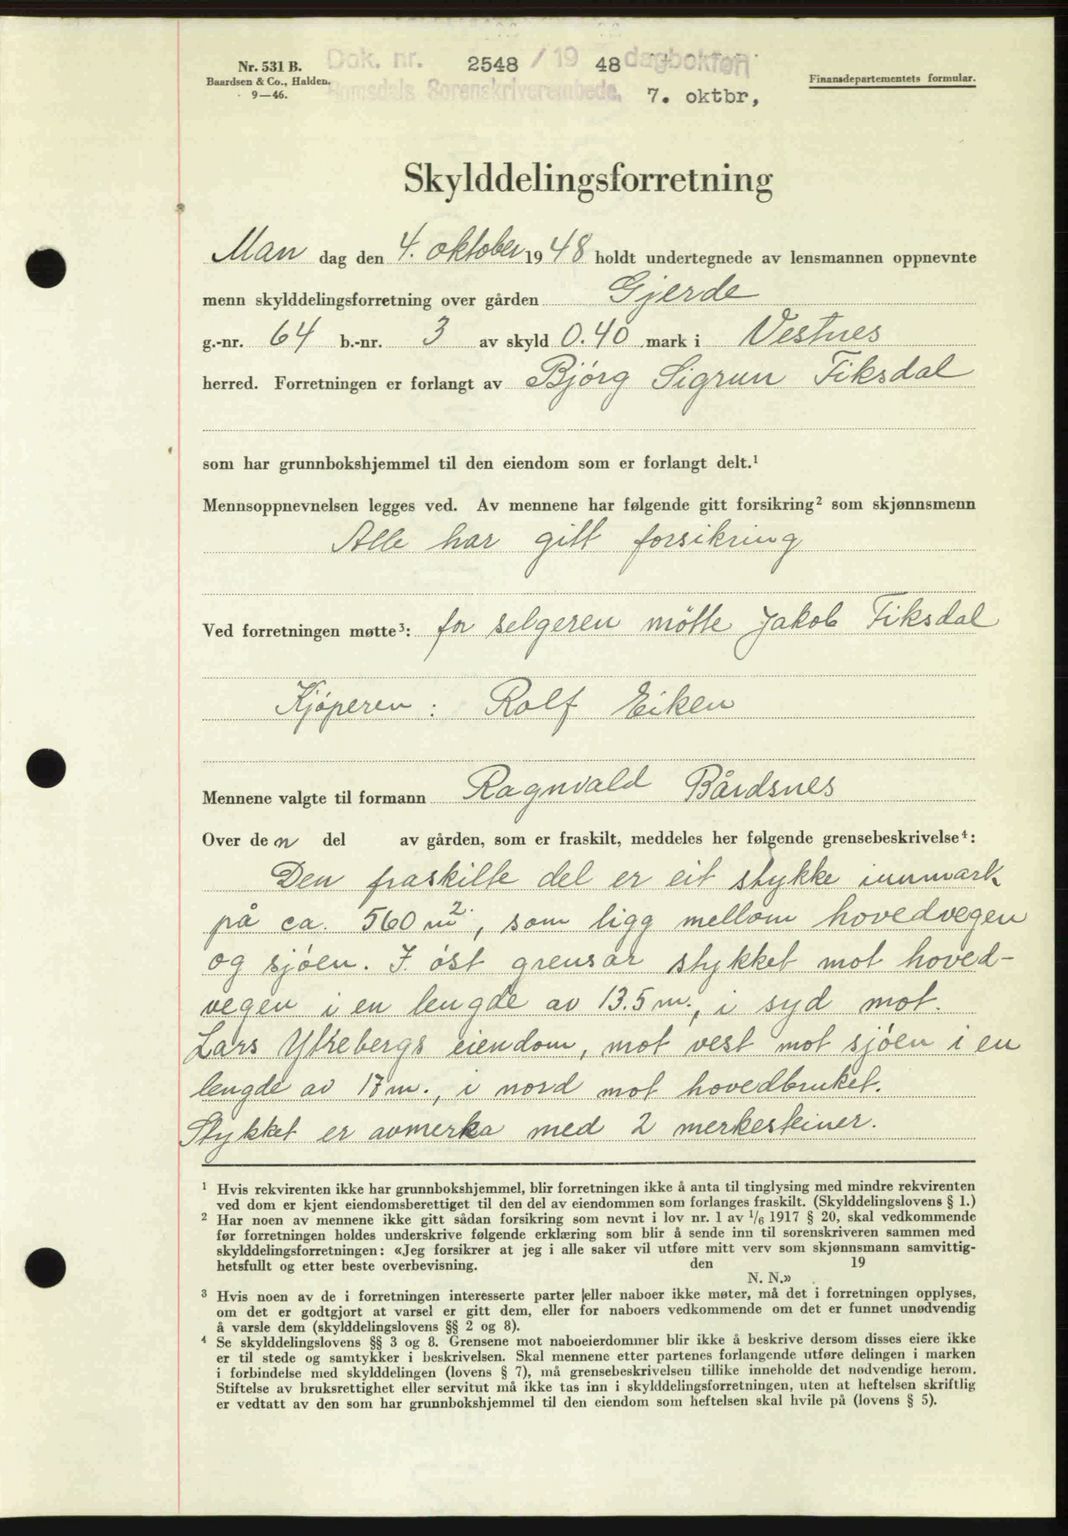 Nr. 531 B.
Baardsen & Co., Halden.
9—46.
Dok. nr. 2548 / 19 48 dagboken
Romsdals Sorenskriverembede.
7. oktbr,
Finansdepartementets formular.
Skylddelingsforretning
Man dag den 4. oktober 1948 holdt undertegnede av lensmannen oppnevnte
menn skylddelingsforretning over gården Gjerde
g.-nr. 64 b.-nr. 3 av skyld 0.40 mark i Vestnes
herred. Forretningen er forlangt av Bjórg Sigrun Fiksdal
som har grunnbokshjemmel til den eiendom som er forlangt delt.¹
Mennsoppnevnelsen legges ved. Av mennene har følgende gitt forsikring² som skjønnsmenn
Alle har gitt forsikring
Ved forretningen møtte³: for selgeren mötte Jakob Fiksdal
Kjóperen : Rolf Eiken
Mennene valgte til formann Ragnvald Bårdsnes
Over den del av gården, som er fraskilt, meddeles her følgende grensebeskrivelse⁴:
Den fraskilte del er eit stykke innmark
på ca. 560 m², som ligg mellom hovedvegen
og sjóen. I óst grensar stykket mot hoved-
vegen i en lengde av 13.5 m., i syd mot.
Lars Ytrebergs eiendom, mot vest mot sjóen i en
lengde av 17 m., i nord mot hovedbruket.
Stykket er avmerka med 2 merkesteiner.
¹ Hvis rekvirenten ikke har grunnbokshjemmel, blir forretningen ikke å anta til tinglysing med mindre rekvirenten
ved dom er kjent eiendomsberettiget til den del av eiendommen som forlanges fraskilt. (Skylddelingslovens § 1.)
² Har noen av mennene ikke gitt sådan forsikring som nevnt i lov nr. 1 av 1/6 1917 § 20, skal vedkommende
før forretningen holdes underskrive følgende erklæring som blir å sende inn til sorenskriveren sammen med
skylddelingsforretningen: «Jeg forsikrer at jeg i alle saker vil utføre mitt verv som skjønnsmann samvittig-
hetsfullt og etter beste overbevisning. den 19
N. N.»
³ Hvis noen av de i forretningen interesserte parter eller naboer ikke møter, må det i forretningen opplyses,
om det er godtgjort at varsel er gitt dem, eller for naboers vedkommende om det er funnet unødvendig
å varsle dem (skylddelingslovens §§ 2 og 8).
⁴ Se skylddelingslovens §§ 3 og 8. Grensene mot naboeierdommer blir ikke å beskrive dersom disses eiere ikke
er til stede og samtykker i beskrivelsen. Skal mennene etter partenes forlangende utføre delingen i marken
i forbindelse med skylddelingen (lovens § 7), må grensebeskrivelsen tillike inneholde det nødvendige herom.
Stiftelse av bruksrettighet eller servitut må ikke tas inn i skylddelingsforretningen, uten at heftelsen skriftlig
er vedtatt av den som har grunnbokshjemmel til den eiendom som heftelsen skal hvile på (lovens § 5).